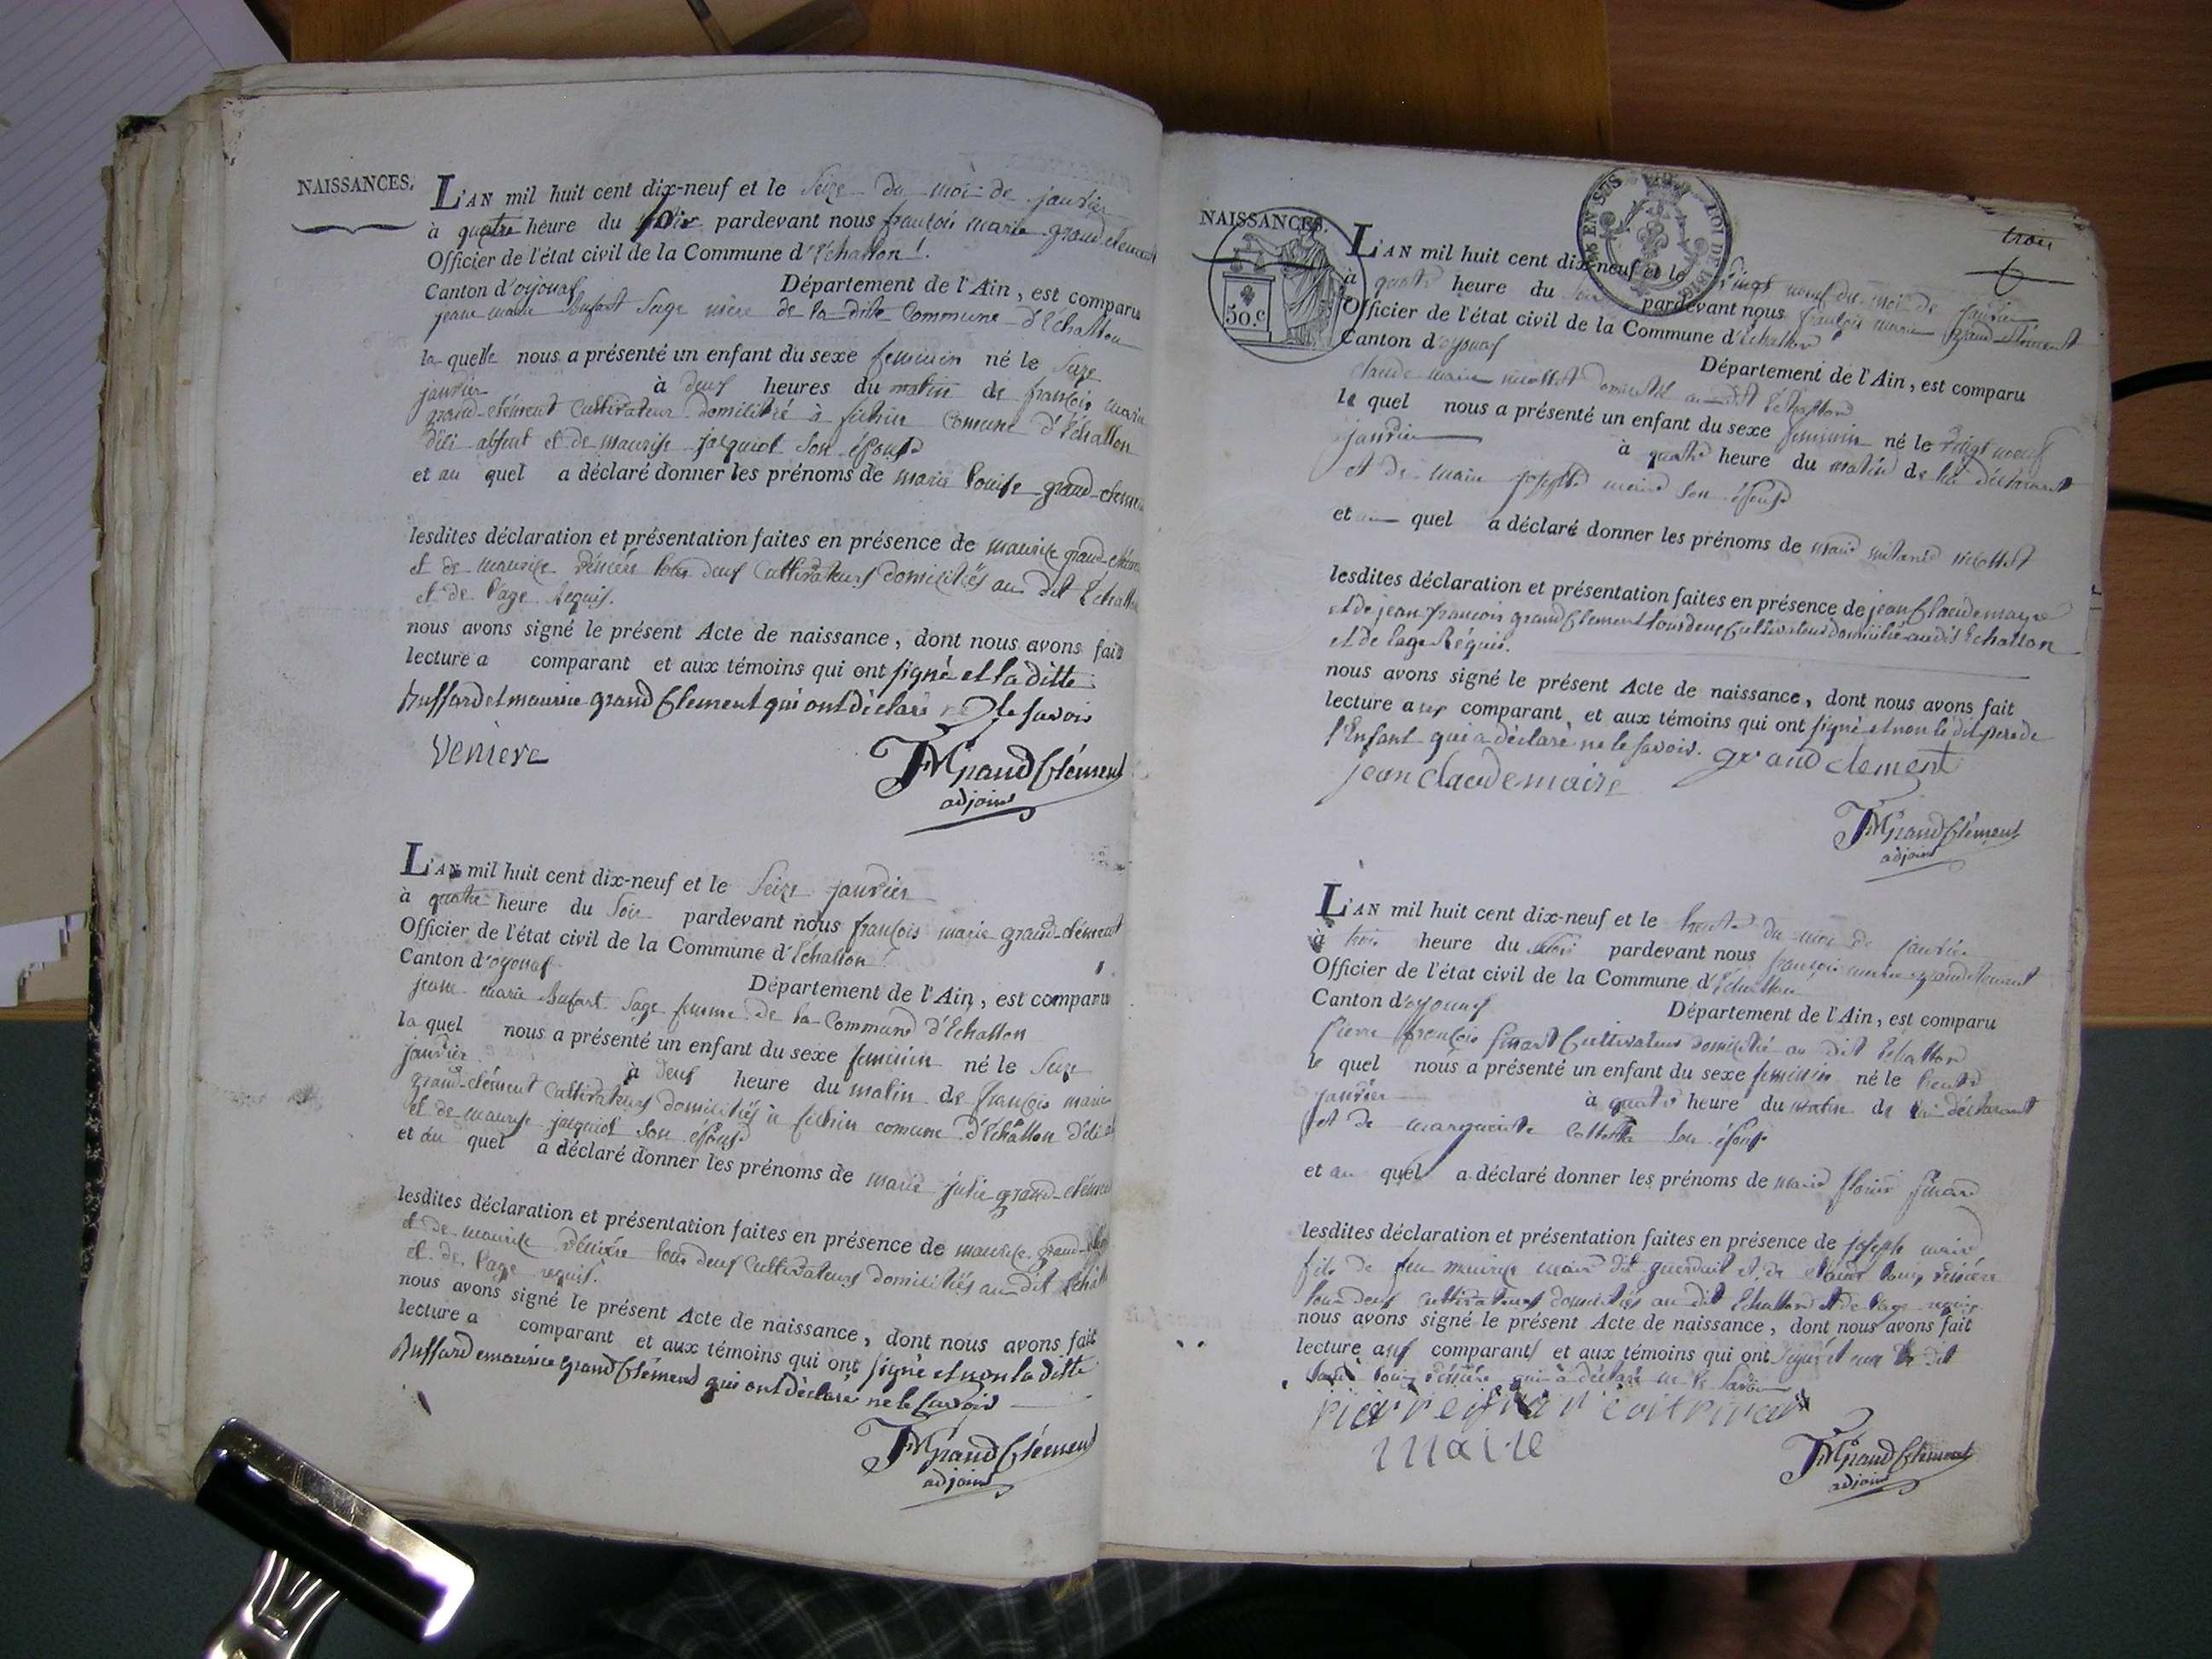 NAISSANCES.
L'AN mil huit cent dix-neuf et le Seize du moi de janvier
à quatre heure du soir pardevant nous françois marie grand-clement
Officier de l'état civil de la Commune d'Echallon
Canton d'oyonaf Département de l'Ain, est comparu
jeane marie Bufart Sage mère de la ditte Commune d'Echallon
la quelle nous a présenté un enfant du sexe feminin né le Seize
janvier à deuf heures du matin de françois marie
grand-clément Cultivateur domicilié à comune d'Echallon
absent et de maurise jacquiot son épouse
et au quel a déclaré donner les prénoms de marie louise grand-clement
lesdites déclaration et présentation faites en présence de maurice grand-clément
et de maurice vénière tous deuf Cultivateurs domiciliés au dit Echallon
et de l'age Requis.
nous avons signé le présent Acte de naissance, dont nous avons fait
lecture a comparant et aux témoins qui ont signé et la ditte
Buffard et maurice grand Clement qui ont déclaré ne le savoir
Veniere
FMGrandClément
adjoint
L'AN mil huit cent dix-neuf et le Seize janvier
à quatre heure du Soir pardevant nous françois marie grand-clément
Officier de l'état civil de la Commune d'Echallon
Canton d'oyonaf Département de l'Ain, est comparu
jeane marie Bufart Sage femme de la Commune d'Echallon
la quel nous a présenté un enfant du sexe feminin né le Seize
janvier à deuf heure du matin de françois marie
grand-clément Cultivateurs domiciliés à comune d'Echallon
et de maurise jacquiot son épouse
et au quel a déclaré donner les prénoms de marie julie grand-clément
lesdites déclaration et présentation faites en présence de maurice grand-clément
et de maurice vénière tous deuf Cultivateurs domiciliés au dit Echallon
et de l'age requis.
nous avons signé le présent Acte de naissance, dont nous avons fait
lecture a comparant et aux témoins qui ont signé et non la ditte
Buffard e maurice grand Clément qui ont déclaré ne le savoir
FMGrandClément
adjoint
trois
NAISSANCES.
50.c
EN SUS LOI DE 1816
L'AN mil huit cent dix-neuf et le vingt neuf du moi de janvier
à quatre heure du soir pardevant nous françois marie grand-clément
Officier de l'état civil de la Commune d'Echallon
Canton d'oyonaf Département de l'Ain, est comparu
claude marie domicilié au dit Echallon
le quel nous a présenté un enfant du sexe feminin né le vingt neuf
janvier à quatre heure du matin de lui déclarant
et de marie josephe maire son épouse
et au quel a déclaré donner les prénoms de marie
lesdites déclaration et présentation faites en présence de jean Claude mayre
et de jean françois grand Clement tous deux Cultivateurs domicilié au dit Echallon
et de l'age Réquis.
nous avons signé le présent Acte de naissance, dont nous avons fait
lecture aux comparant, et aux témoins qui ont signé et non le dit pere de
l'Enfant qui a déclaré ne le savoir. grand clement
jean claude maire
FMGrandClément
adjoint
L'AN mil huit cent dix-neuf et le trente du moi de janvier
à trois heure du soir pardevant nous françois marie grand clément
Officier de l'état civil de la Commune d'Echallon
Canton d'oyonaf Département de l'Ain, est comparu
pierre françois Cultivateur domicilié au dit Echallon
le quel nous a présenté un enfant du sexe feminin né le trente
janvier à quatre heure du matin de lui déclarant
et de marguerite son épouse
et au quel a déclaré donner les prénoms de marie
lesdites déclaration et présentation faites en présence de joseph maire
fils de feu maurice maire dit et de claude louis vénière
tous deuf cultivateurs domiciliés au dit Echallon et de l'age requis
nous avons signé le présent Acte de naissance, dont nous avons fait
lecture auf comparant et aux témoins qui ont signé et non le dit
claude louis vénière qui a déclaré ne le savoir
maire
FMGrandClément
adjoint